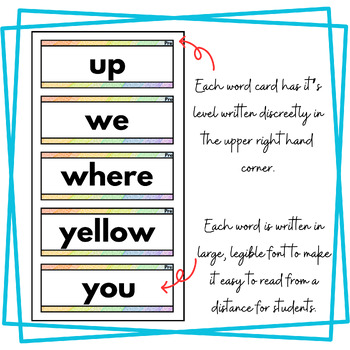 Pre
up
Pre
we
Pre
where
Pre
yellow
Pre
you
Each word card has it's
level written discreetly in
the upper right hand
corner.
Each word is written in
large, legible font to make
it easy to read from a
distance for students.